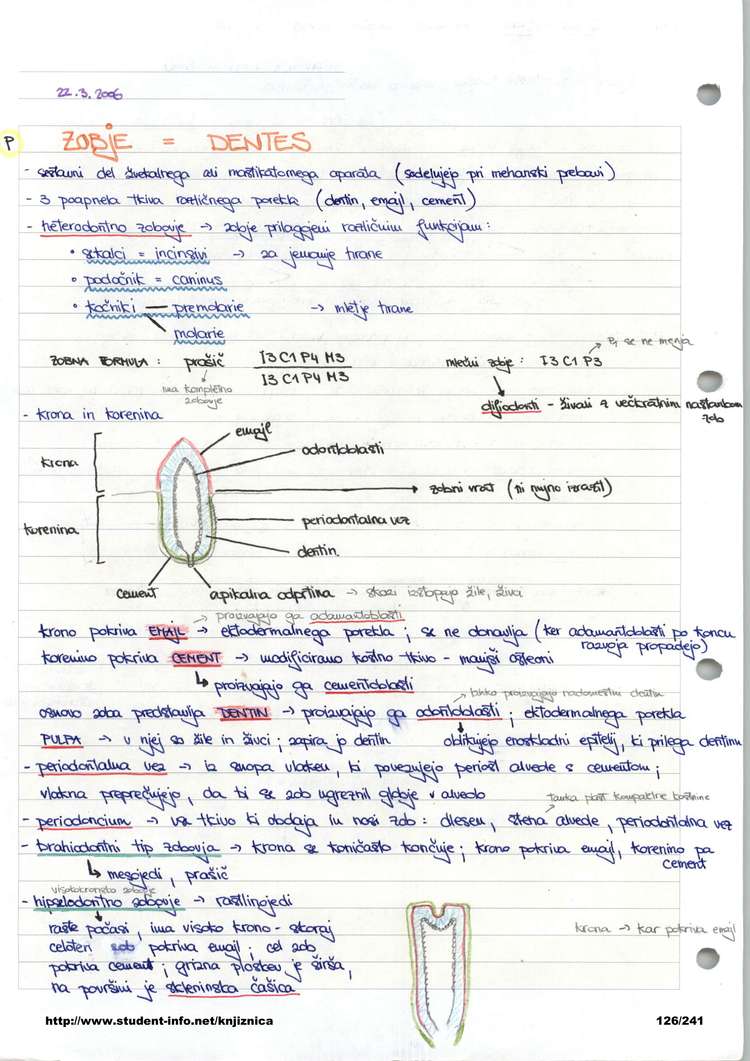 22.3.2006
P
ZOBJE = DENTES
- sestavni del žvekalnega ali mastikatornega aparata (sodelujejo pri mehanski prebavi)
- 3 poapnela tkiva različnega porekla (dentin, emajl, cement)
- heterodontno zobovje → zobje prilagojeni različnim funkcijam:
• sekalci = incinsivi → za jemanje hrane
• podočnik = caninus
• kočniki — premolarie → mletje hrane
molarie
P1 se ne menja
ZOBNA FORMULA: prašič I3 C1 P4 M3 mlečni zobje: I3 C1 P3
I3 C1 P4 M3
ima kompletno zobovje
difiodonti - živali z večkratnim nastankom zob
- krona in korenina
emajl
odontoblasti
krona
zobni vrat (ni nujno izrazit)
korenina
periodontalna vez
dentin
cement
apikalna odprtina → skozi izstopajo žile, živci
→ proizvajajo ga adamantoblasti
krono pokriva EMAJL → ektodermalnega porekla; se ne obnavlja (ker adamantoblasti po koncu razvoja propadejo)
korenino pokriva CEMENT → modificirano kostno tkivo - manjši osteoni
proizvajajo ga cementoblasti
→ lahko proizvajajo nadomestni dentin
osnovo zoba predstavlja DENTIN → proizvajajo ga odontoblasti; ektodermalnega porekla
PULPA → v njej so žile in živci; zapira jo dentin
oblikujejo enoskladni epitelij, ki prilega dentinu
- periodontalna vez → iz snopa vlaken, ki povezujejo periost alveole s cementom;
vlakna preprečujejo, da bi se zob ugreznil globje v alveolo
tanka plast kompaktne kostnine
- periodoncium → vsa tkiva ki obdaja in nosi zob: dlesen, stena alveole, periodontalna vez
- brahiodontni tip zobovja → krona se koničasto končuje; krono pokriva emajl, korenino pa cement
mesojedi, prašič
visokokronsko zobovje
- hipselodontno zobovje → rastlinojedi
raste počasi, ima visoko krono - skoraj
celoten zob pokriva emajl; cel zob
pokriva cement; grizna ploskev je širša,
na površini je skleninska čašica
krona → kar pokriva emajl
http://www.student-info.net/knjiznica
126/241